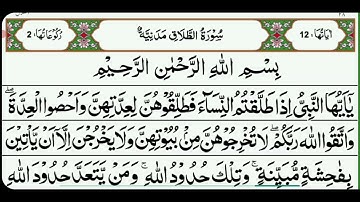 اٰيَاتُهَا: 12 سُوْرَةُ الطَّلَاقِ مَدَنِيَّةٌ رُكُوْعَاتُهَا: 2
بِسْمِ اللّٰهِ الرَّحْمٰنِ الرَّحِيْمِ
يٰۤاَيُّهَا النَّبِيُّ اِذَا طَلَّقْتُمُ النِّسَآءَ فَطَلِّقُوْهُنَّ لِعِدَّتِهِنَّ وَاَحْصُوا الْعِدَّةَ ۚ
وَاتَّقُوا اللّٰهَ رَبَّكُمْ ۚ لَا تُخْرِجُوْهُنَّ مِنْۢ بُيُوْتِهِنَّ وَلَا يَخْرُجْنَ اِلَّاۤ اَنْ يَّاْتِيْنَ
بِفَاحِشَةٍ مُّبَيِّنَةٍ ؕ وَتِلْكَ حُدُوْدُ اللّٰهِ ؕ وَمَنْ يَّتَعَدَّ حُدُوْدَ اللّٰهِ